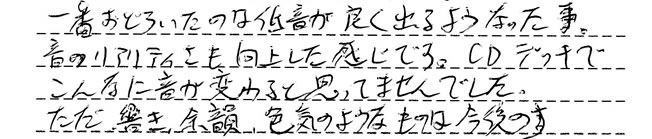 一番おどろいたのは低音が良く出るようなった事。
音のリアリティさも向上した感じでる。CDデッキで
こんなに音が変わると思ってませんでした。
ただ 響き、余韻、色気のようなものは今後の事